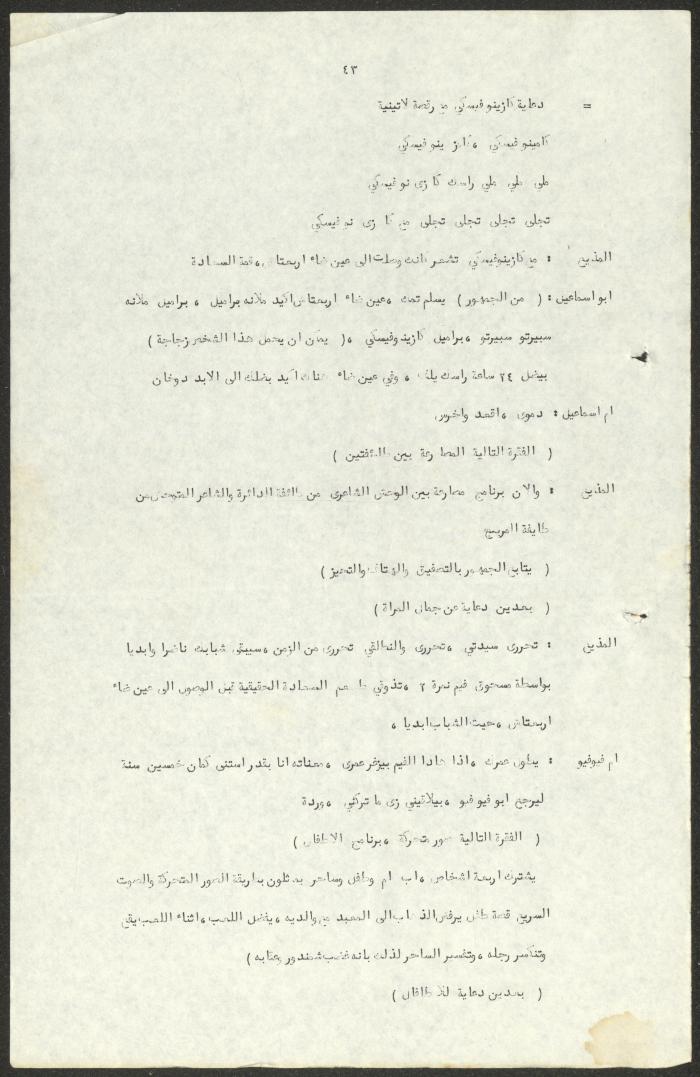 ٤٣
= دعاية كازينوفيسكي مع رقصة لاتينية
كامينوفيسكي ، كازينوفيسكي
ملي ملي ملي راسك كازى نوفيسكي
تجلى تجلى تجلى تجلى مع كازى نوفيسكي
المذيع : مع كازينوفيسكي تشعر بانك وصلت الى عين ضاء اربعتاش ، قمة السعادة
ابو اسماعيل : ( من الجمهور ) يسلم تمك ، عين ضاء اربعتاش اكيد ملانه براميل ، براميل ملانه
سبيرتو سبيرتو ، براميل كازينوفيسكي ، ( يمكن ان يحمل هذا الشخص زجاجة )
بيضل ٢٤ ساعة راسك يلف ، وفي عين ضاء هناك اكيد بضلك الى الابد دوخان
ام اسماعيل : دموى ، اقعد واخرس
( الفقرة التالية المصارعة بين طائفتين )
المذيع : والان برنامج مصارعة بين الوحش الشاعرى من طائفة الدائرة والشاعر المتوحش من
طايفة المربع
( يتابع الجمهور بالتصفيق والهتاف والتحيز )
( بعدين دعاية عن جمال المراة )
المذيع : تحررى سيدتي ، تحررى والنطلقي تحررى من الزمن ، سيبقى شبابك ناضرا وابديا
بواسطة مسحوق فيم نمرة ٢ ، تذوقي طعم السعادة الحقيقية قبل الوصول الى عين ضاء
اربعتاش ، حيث الشباب ابديا ،
ام فيوفيو : يطول عمرك ، اذا هادا الفيم بيزغر عمرى ، معناته انا بقدر استنى كمان خمسين سنة
ليرجع ابو فيو فيو ، بيلاقيني زى ما تركني ، وردة
( الفقرة التالية صور متحركة ، برنامج الاطفال )
يشترك اربعة اشخاص ، اب ام وطفل وساحر يمثلون بطريقة الصور المتحركة والصوت
السريع قصة طفل يرفض الذهاب الى المعبد مع والديه ، يفضل اللعب ، اثناء اللعب يقع
وتنكسر رجله ، وتفسير الساحر لذلك بانه غضب شمندور وعقابه )
( بعدين دعاية للاطفال )